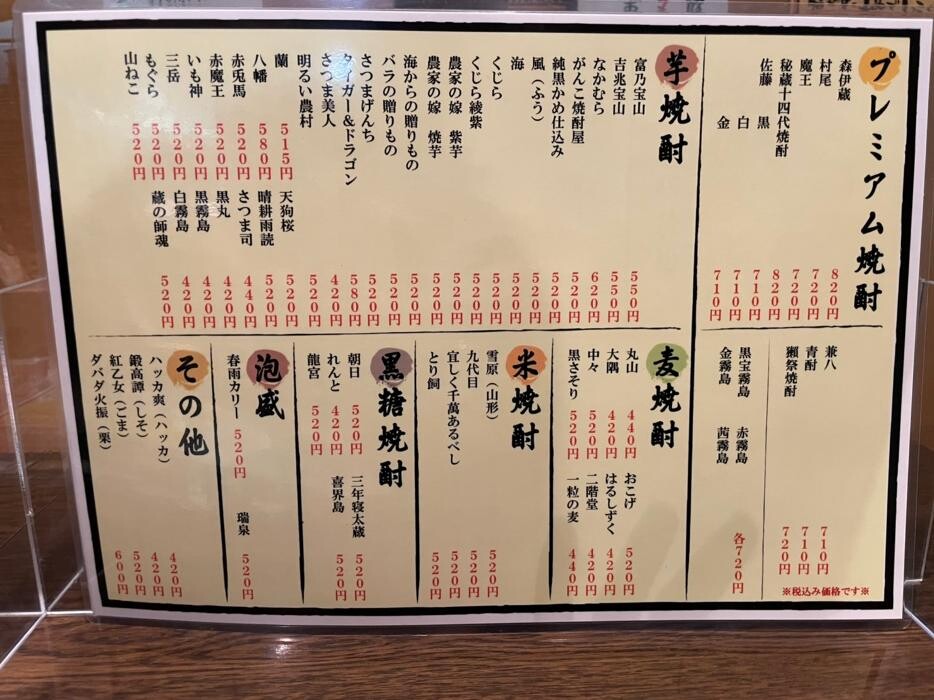 プレミアム焼酎
森伊蔵 820円
村尾 720円
魔王 720円
秘蔵十四代焼酎 820円
佐藤 黒 710円
白 710円
金 710円
兼八 710円
青酎 710円
獺祭焼酎 720円
黒宝霧島 赤霧島
金霧島 茜霧島
各720円
※税込み価格です※
芋焼酎
富乃宝山 550円
吉兆宝山 550円
なかむら 620円
がんこ焼酎屋 520円
純黒かめ仕込み 520円
風(ふう) 520円
海 520円
くじら 520円
くじら綾紫 520円
農家の嫁 紫芋 520円
農家の嫁 焼芋 520円
海からの贈りもの 520円
バラの贈りもの 520円
さつまげんち 520円
タイガー&ドラゴン 580円
さつま美人 420円
明るい農村 520円
蘭 515円 天狗桜 520円
八幡 580円 晴耕雨読 520円
赤兎馬 520円 さつま司 440円
赤魔王 520円 黒丸 420円
いも神 520円 黒霧島 420円
三岳 520円 白霧島 420円
もぐら 520円 蔵の師魂 520円
山ねこ 520円
麦焼酎
丸山 440円 おこげ 520円
大隅 420円 はるしずく 420円
中々 520円 二階堂 420円
黒さそり 520円 一粒の麦 440円
米焼酎
雪原(山形) 520円
九代目 520円
宜しく千萬あるべし 520円
とり飼 520円
黒糖焼酎
朝日 520円 三年寝太蔵 520円
れんと 420円 喜界島 520円
龍宮 520円
泡盛
春雨カリー 520円 瑞泉 520円
その他
ハッカ爽(ハッカ) 420円
鍛高譚(しそ) 420円
紅乙女(ごま) 520円
ダバダ火振(栗) 600円